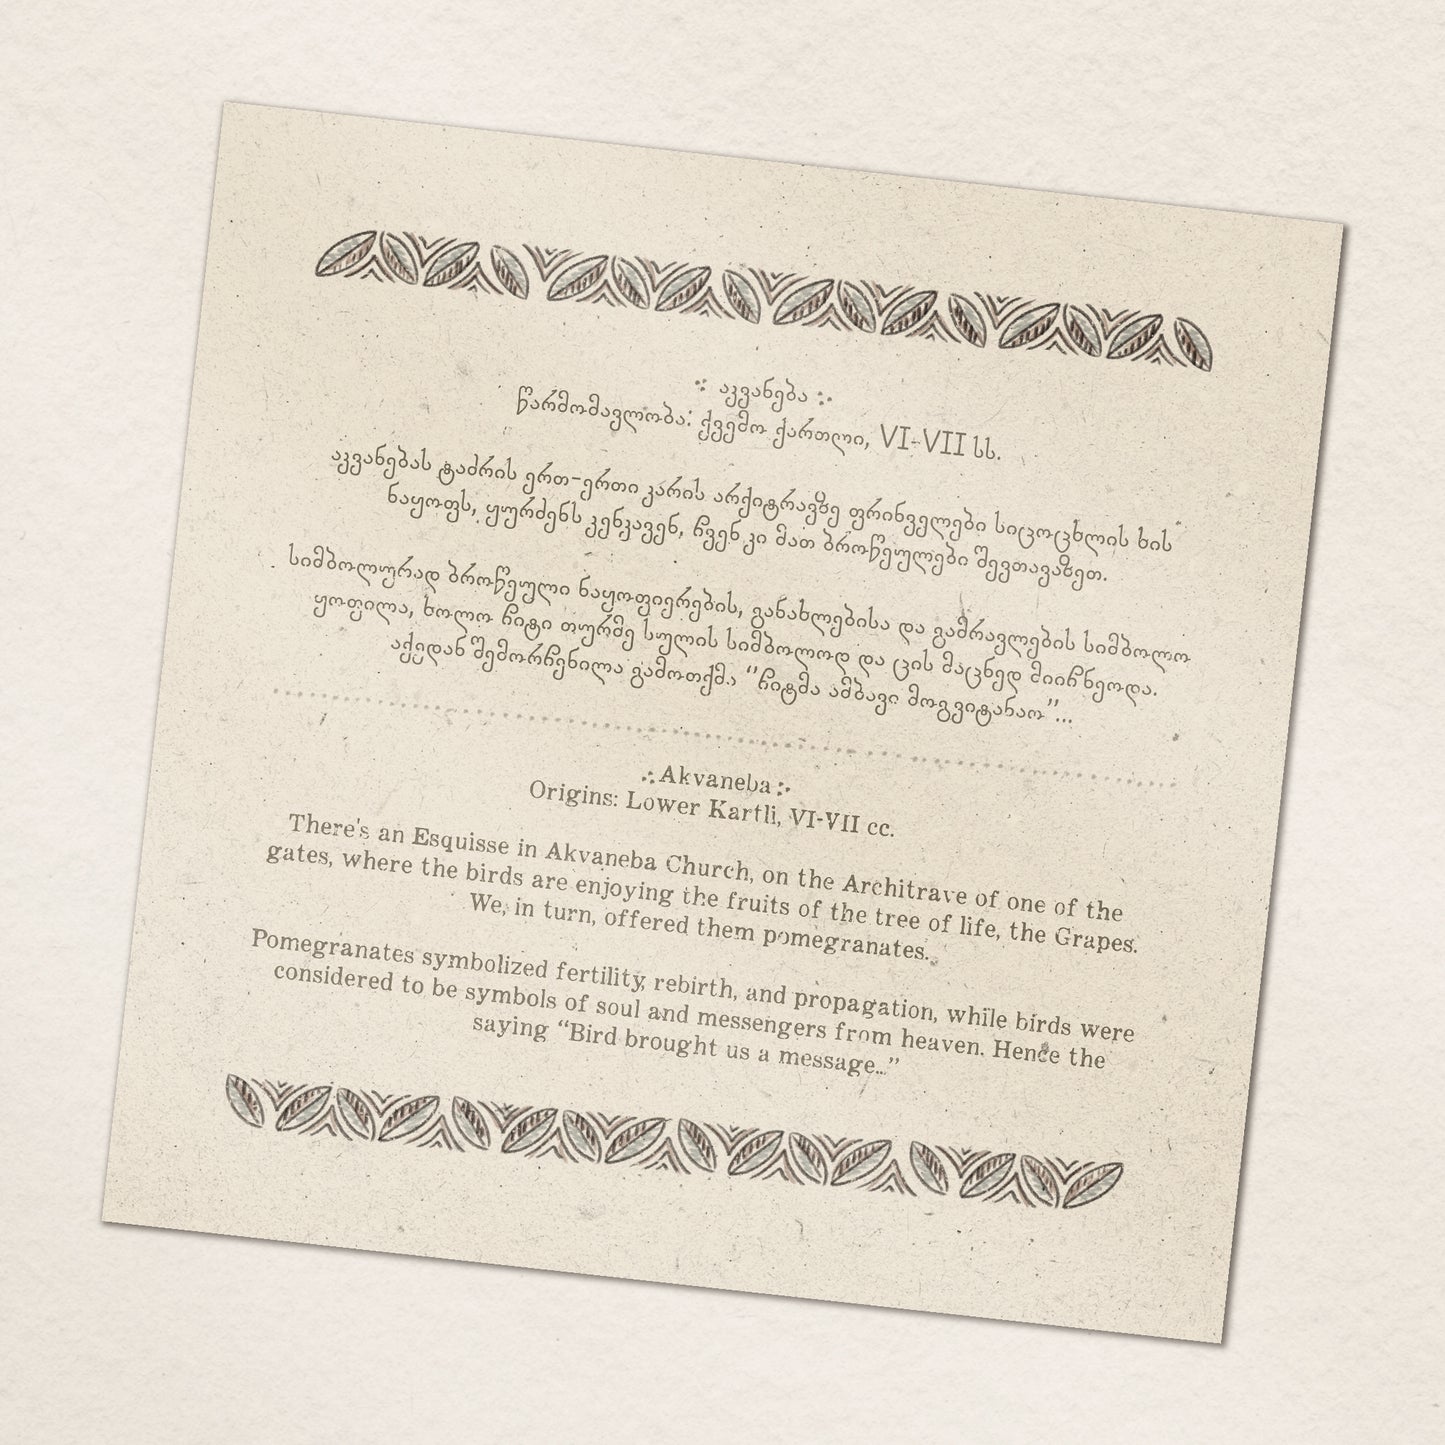 აკვანება
წარმომავლობა: ქვემო ქართლი, VI-VII სს.
აკვანებას ტაძრის ერთ-ერთი კარის არქიტრავზე ფრინველები სიცოცხლის ხის
ნაყოფს, ყურძენს კენკავენ, ჩვენ კი მათ ბროწეულები შევთავაზეთ.
სიმბოლურად ბროწეული ნაყოფიერების, განახლებისა და გამრავლების სიმბოლო
ყოფილა, ხოლო ჩიტი თურმე სულის სიმბოლოდ და ცის მაცნედ მიიჩნეოდა.
აქედან შემორჩენილა გამოთქმა “ჩიტმა ამბავი მოგვიტანაო”...
Akvaneba
Origins: Lower Kartli, VI-VII cc.
There's an Esquisse in Akvaneba Church, on the Architrave of one of the
gates, where the birds are enjoying the fruits of the tree of life, the Grapes.
We, in turn, offered them pomegranates.
Pomegranates symbolized fertility, rebirth, and propagation, while birds were
considered to be symbols of soul and messengers from heaven. Hence the
saying “Bird brought us a message...”